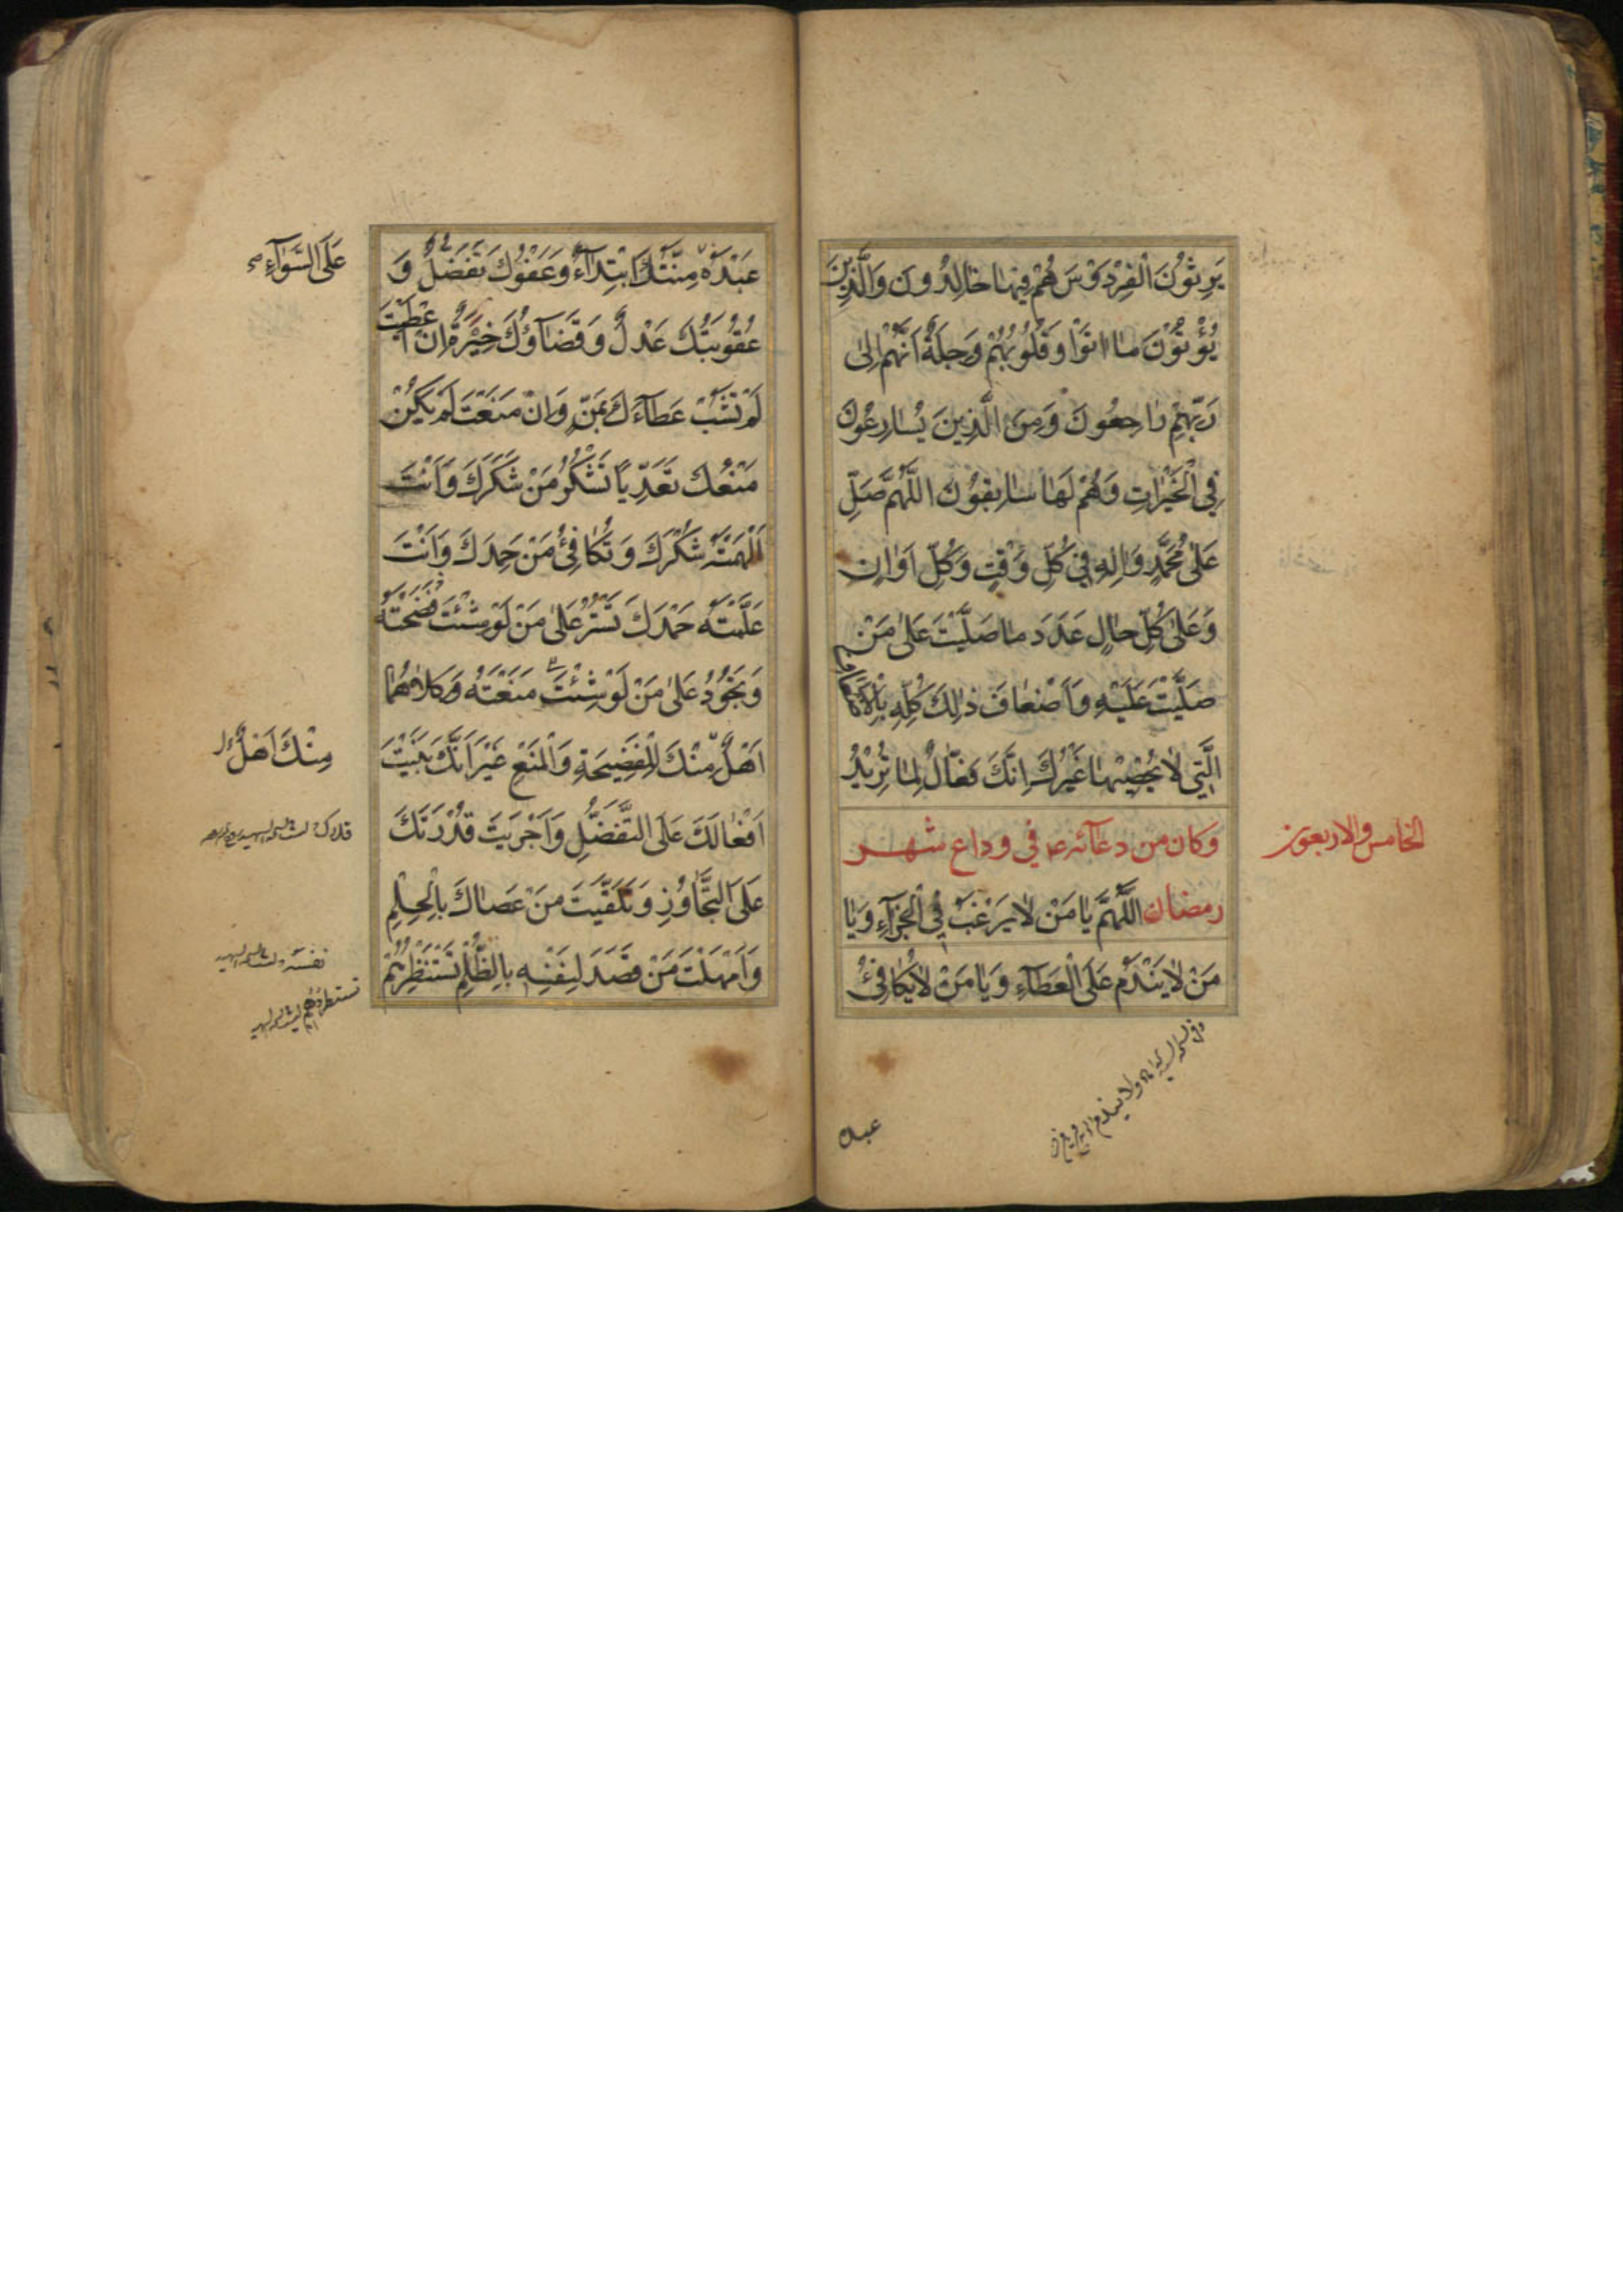 يَرِثُونَ الْفِرْدَوْسَ هُمْ فِيهَا خَالِدُونَ وَالَّذِينَ
يُؤْتُونَ مَا اتَوْا وَقُلُوبُهُمْ وَجِلَةٌ اَنَّهُمْ اِلىٰ
رَبِّهِمْ رَاجِعُونَ وَمِنَ الَّذِينَ يُسَارِعُونَ
فِي الْخَيْرَاتِ وَهُمْ لَهَا سَابِقُونَ اللَّهُمَّ صَلِّ
عَلىٰ مُحَمَّدٍ وَالِهِ فِي كُلِّ وَقْتٍ وَكُلِّ اَوَانٍ
وَعَلىٰ كُلِّ حَالٍ عَدَدَ مَا صَلَّيْتَ عَلىٰ مَنْ
صَلَّيْتَ عَلَيْهِ وَاَضْعَافَ ذٰلِكَ كُلِّهِ بِالْاَضْعَافِ
الَّتِي لَا يُحْصِيهَا غَيْرُكَ اِنَّكَ فَعَّالٌ لِمَا تُرِيْدُ
وكان من دعآئه ع في وداع شهر
الخامس والاربعون
رمضان اللَّهُمَّ يَا مَنْ لَا يَرْغَبُ فِي الْجَزَآءِ وَيَا
مَنْ لَا يَنْدَمُ عَلَى الْعَطَآءِ وَيَا مَنْ لَا يُكَافِئُ
عبده
عَبْدَهُ مِنَّتُكَ ابْتِدَآءٌ وَعَفْوُكَ تَفَضُّلٌ وَ
عَلَى السَّوَآءِ صح
عُقُوبَتُكَ عَدْلٌ وَقَضَآؤُكَ خِيَرَةٌ اِنْ اَعْطَيْتَ
لَمْ تَشُبْ عَطَآءَكَ بِمَنٍّ وَاِنْ مَنَعْتَ لَمْ يَكُنْ
مَنْعُكَ تَعَدِّيًا تَشْكُرُ مَنْ شَكَرَكَ وَاَنْتَ
اَلْهَمْتَهُ شُكْرَكَ وَتُكَافِئُ مَنْ حَمِدَكَ وَاَنْتَ
عَلَّمْتَهُ حَمْدَكَ تَسْتُرُ عَلىٰ مَنْ لَوْ شِئْتَ فَضَحْتَهُ
وَتَجُوْدُ عَلىٰ مَنْ لَوْ شِئْتَ مَنَعْتَهُ وَكِلَاهُمَا
اَهْلٌ مِنْكَ لِلْفَضِيحَةِ وَالْمَنْعِ غَيْرَ اَنَّكَ بَنَيْتَ
مِنْكَ اَهْلٌ
اَفْعَالَكَ عَلَى التَّفَضُّلِ وَاَجْرَيْتَ قُدْرَتَكَ
عَلَى التَّجَاوُزِ وَتَلَقَّيْتَ مَنْ عَصَاكَ بِالْحِلْمِ
وَاَمْهَلْتَ مَنْ قَصَدَ لِنَفْسِهِ بِالظُّلْمِ تَسْتَنْظِرُهُمْ